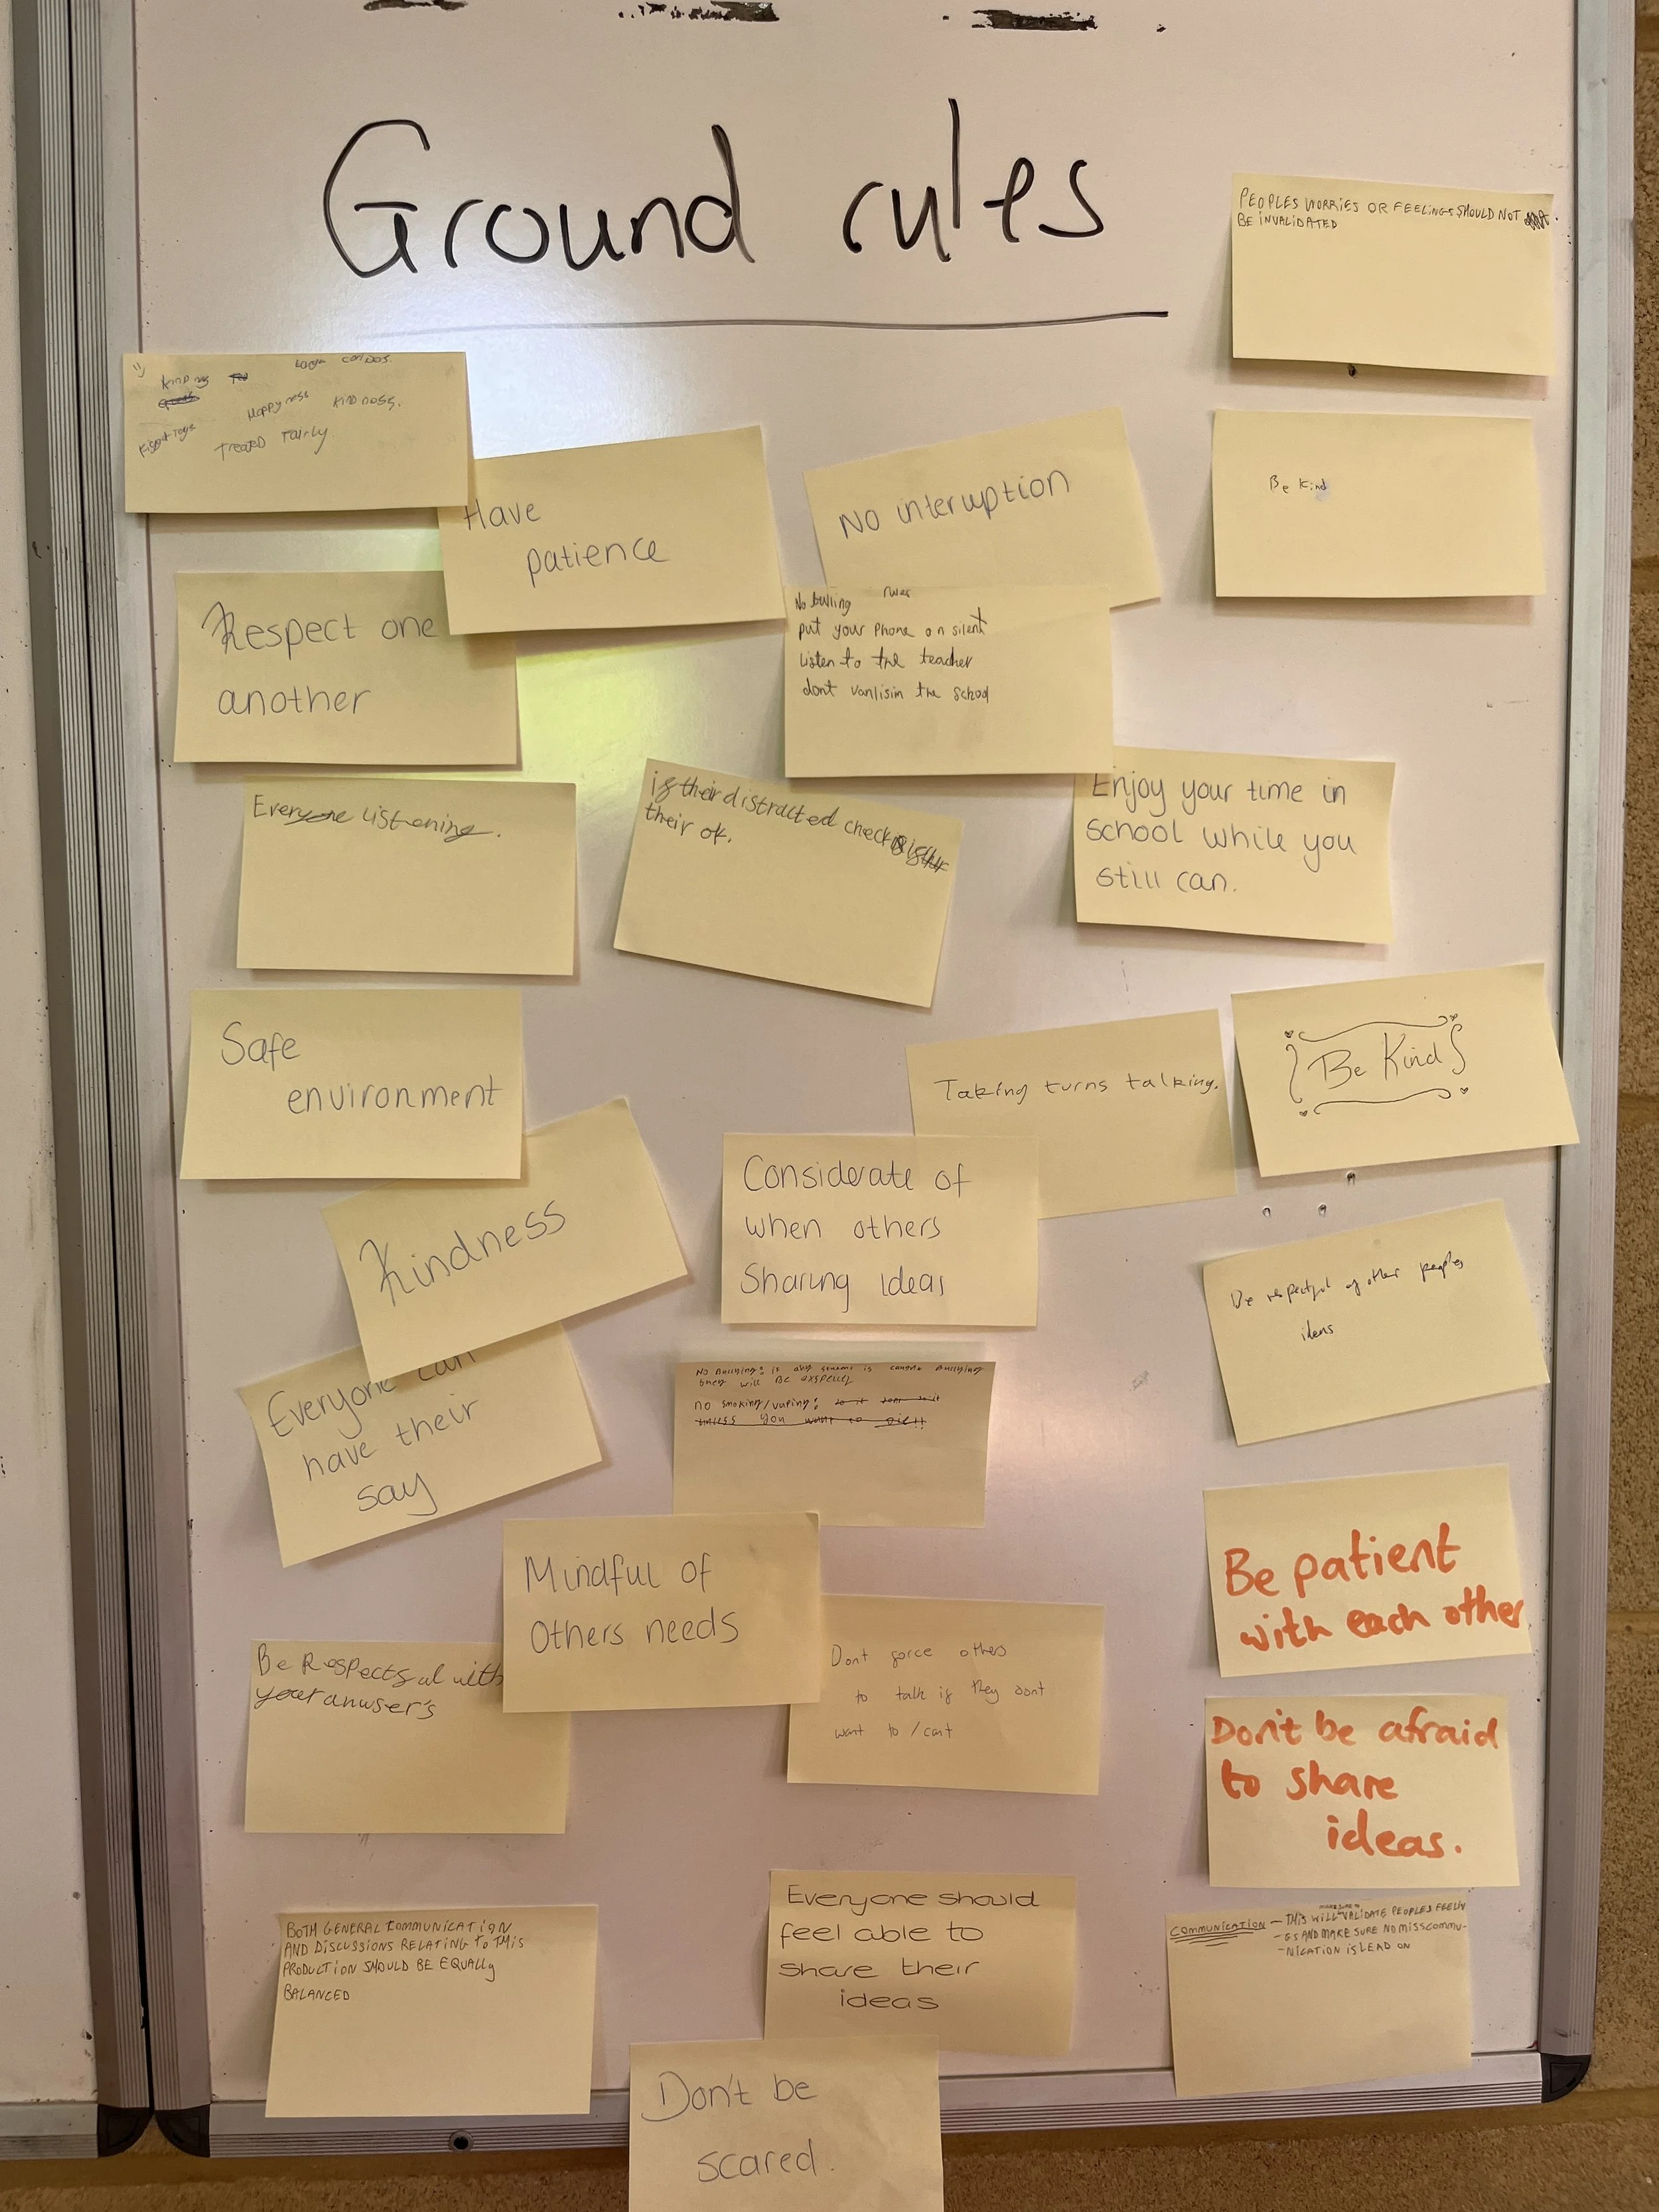 Ground rules
PEOPLES WORRIES OR FEELINGS SHOULD NOT
BE INVALIDATED
Happyness KINDNESS.
Treated fairly
Have
patience
No interuption
Be kind
Respect one
another
No bulling rules
put your phone on silent
Listen to the teacher
dont vanlisim the school
Everyone listening.
if their distracted check
their ok.
Enjoy your time in
school while you
still can.
Safe
environment
Taking turns talking.
Be Kind
Kindness
Considerate of
when others
Sharing ideas
Be respectful of other peoples
ideas
Everyone can
have their
say
No Bullying: if any student is caught Bullying
they will Be
no smoking/vaping:
unless you want to die!!
Mindful of
Others needs
Be patient
with each other
Be Respectful with
your
Dont force others
to talk if they dont
want to / cant
Don't be afraid
to share
ideas.
BOTH GENERAL COMMUNICATION
AND DISCUSSIONS RELATING TO THIS
PRODUCTION SHOULD BE EQUALLY
BALANCED
Everyone should
feel able to
share their
ideas
COMMUNICATION - THIS WILL VALIDATE PEOPLES FEELIN
-GS AND MAKE SURE NO MISSCOMMU-
-NICATION IS LEAD ON
Don't be
scared.